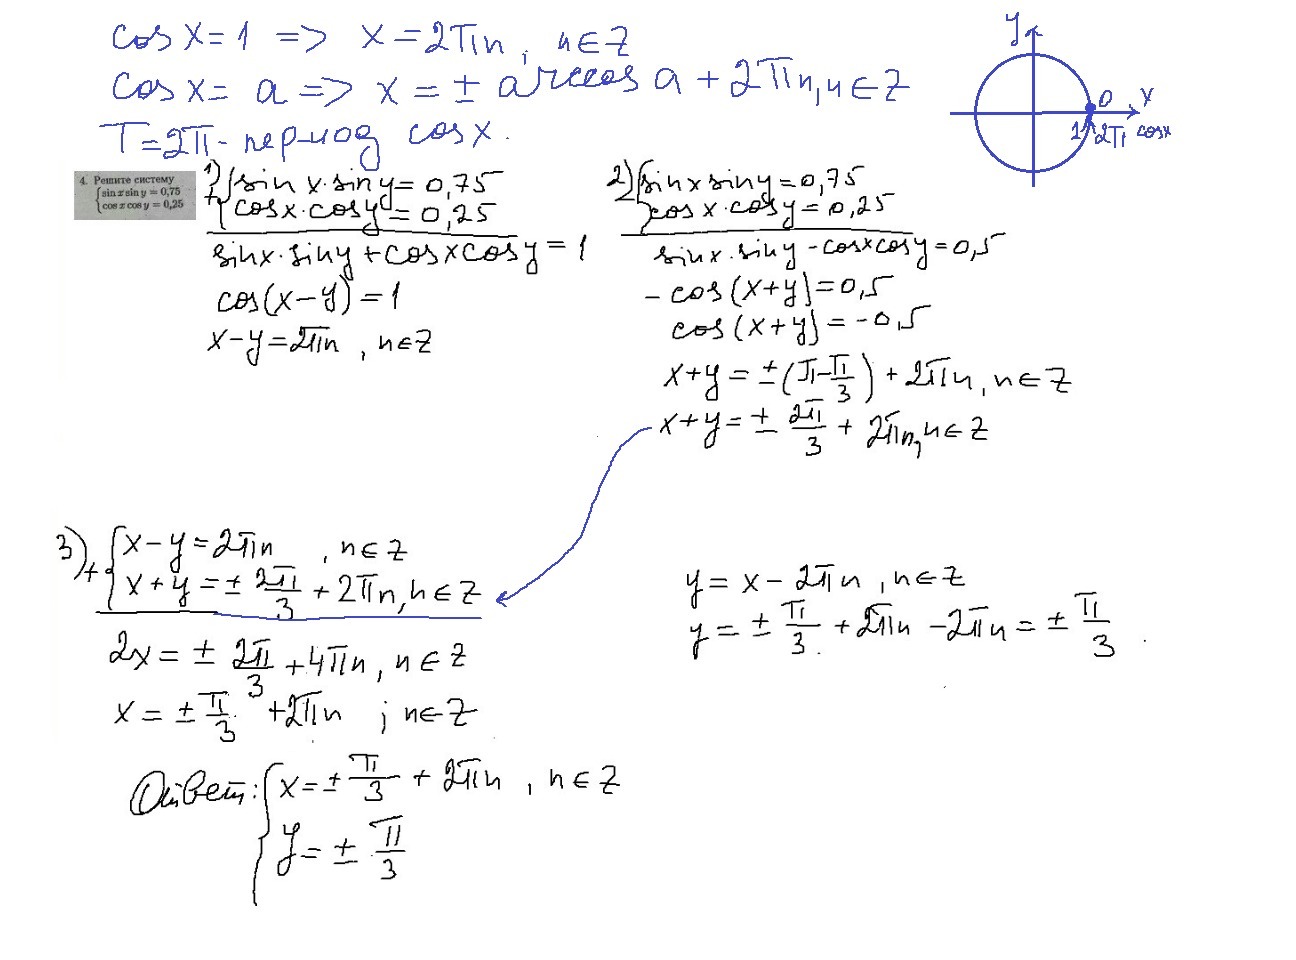 cos x = 1 => x = 2πn, n∈Z
cos x = a => x = ± arccos a + 2πn, n∈Z
T = 2π - период cos x.
y
0 x
1 2π cosx
4. Решите систему
{ sin x sin y = 0,75
cos x cos y = 0,25
1) + { sin x · sin y = 0,75
cos x · cos y = 0,25
sin x · sin y + cos x cos y = 1
cos(x-y) = 1
x-y = 2πn, n∈Z
2) { sin x sin y = 0,75
cos x · cos y = 0,25
sin x · sin y - cos x cos y = 0,5
- cos (x+y) = 0,5
cos (x+y) = -0,5
x+y = ± (π - π/3) + 2πn, n∈Z
x+y = ± 2π/3 + 2πn, n∈Z
3) + { x - y = 2πn, n∈Z
x + y = ± 2π/3 + 2πn, n∈Z
2x = ± 2π/3 + 4πn, n∈Z
x = ± π/3 + 2πn ; n∈Z
y = x - 2πn, n∈Z
y = ± π/3 + 2πn - 2πn = ± π/3.
Ответ: { x = ± π/3 + 2πn, n∈Z
y = ± π/3